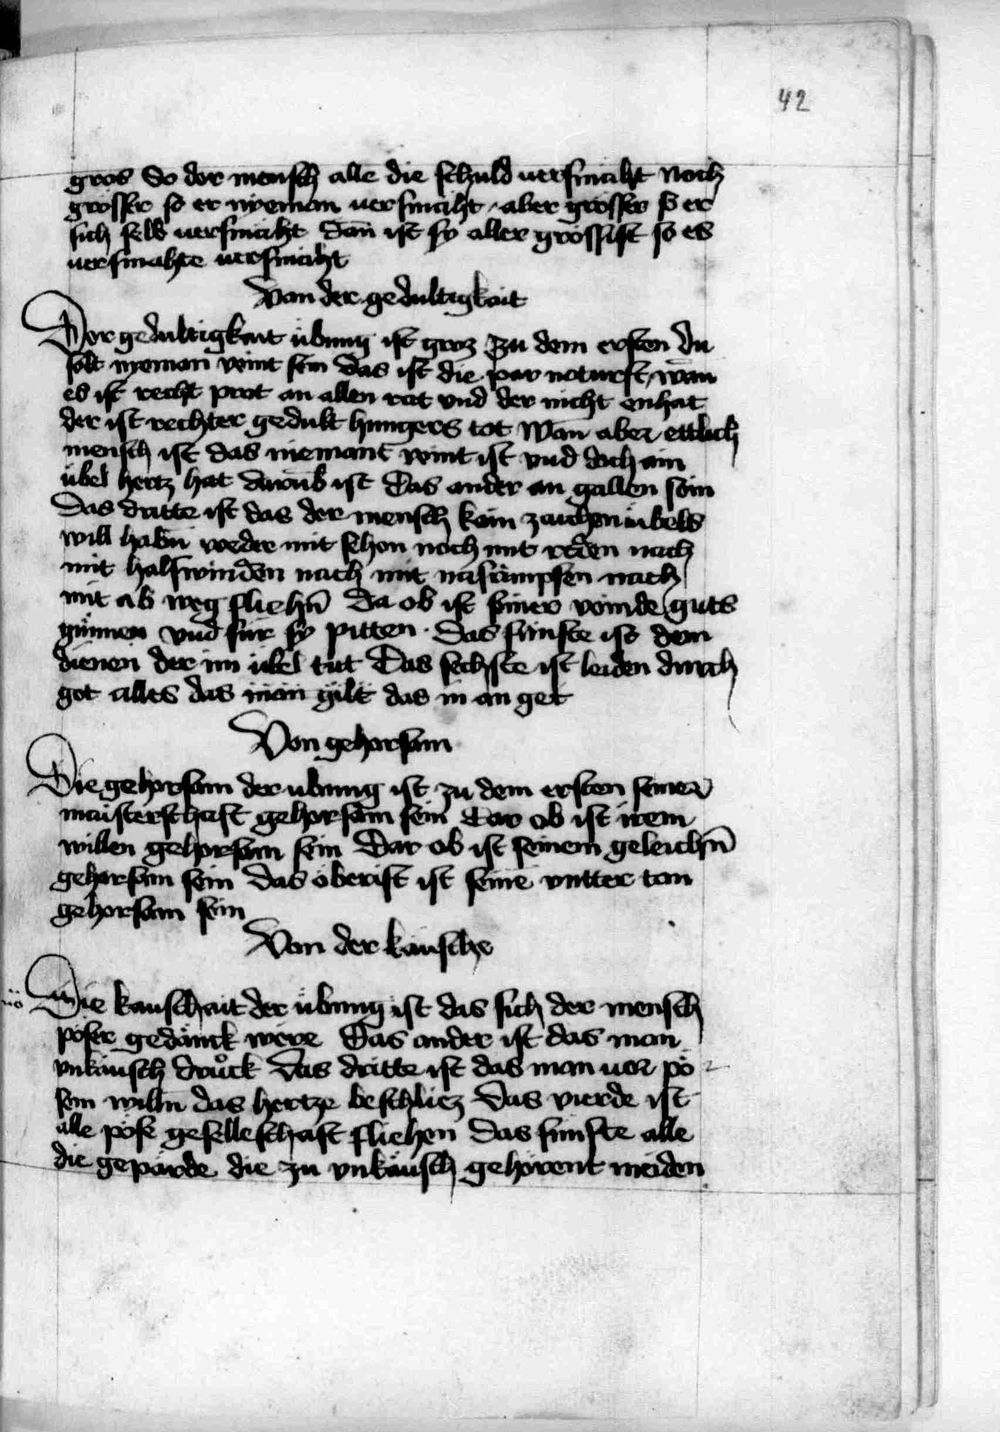 42
gros So der mensch alle die schuld versmäht Noch
grösser so er nyeman versmäht aber grösser so er
sich selb versmäht dan̄ ist sy aller grössist so es
versmähte versmäht
Von der gedultigkait
Der gedultigkait übung ist groz Zu dem ersten du
solt nyeman veint sein das ist die par noturft wan̄
es ist recht prot an allen rat vnd der nicht enhat
der ist rechter gedult hungers tot Wan̄ aber ettlich
mensch ist das niemant veint ist vnd doch ain
übel hertz hat darumb ist Das ander an gallen sein
Das dritte ist das der mensch kain zaichen übels
will habn̄ weder mit sehen noch mit reden nach
mit halswinden nach mit nasrimpfen nach
mit ab weg fliehn̄ Da ob ist seiner veinde guts
günnen vnd für sy pitten · Das fünfte ist dem
dienen der im übel tut Das sechste ist leiden durch
got alles das man gilt das in an get
Von gehorsam
Die gehorsam der übung ist zu dem ersten seiner
maisterschaft gehorsam sein Dar ob ist irem
willen gehorsam sein Dar ob ist seinem geleichn̄
gehorsam sein das öberist ist seinē vntter tan
gehorsam sein
Von der käusche
Die kauschait der übung ist das sich der mensch
pöser gedänck were Das ander ist das man
vnkäusch druck Das dritte ist das man vor pö
sem willn das hertze beschliez Das vierde ist
alle pöse geselleschaft fliehen Das fünfte alle
die gepärde die zu vnkäusch gehörent meiden